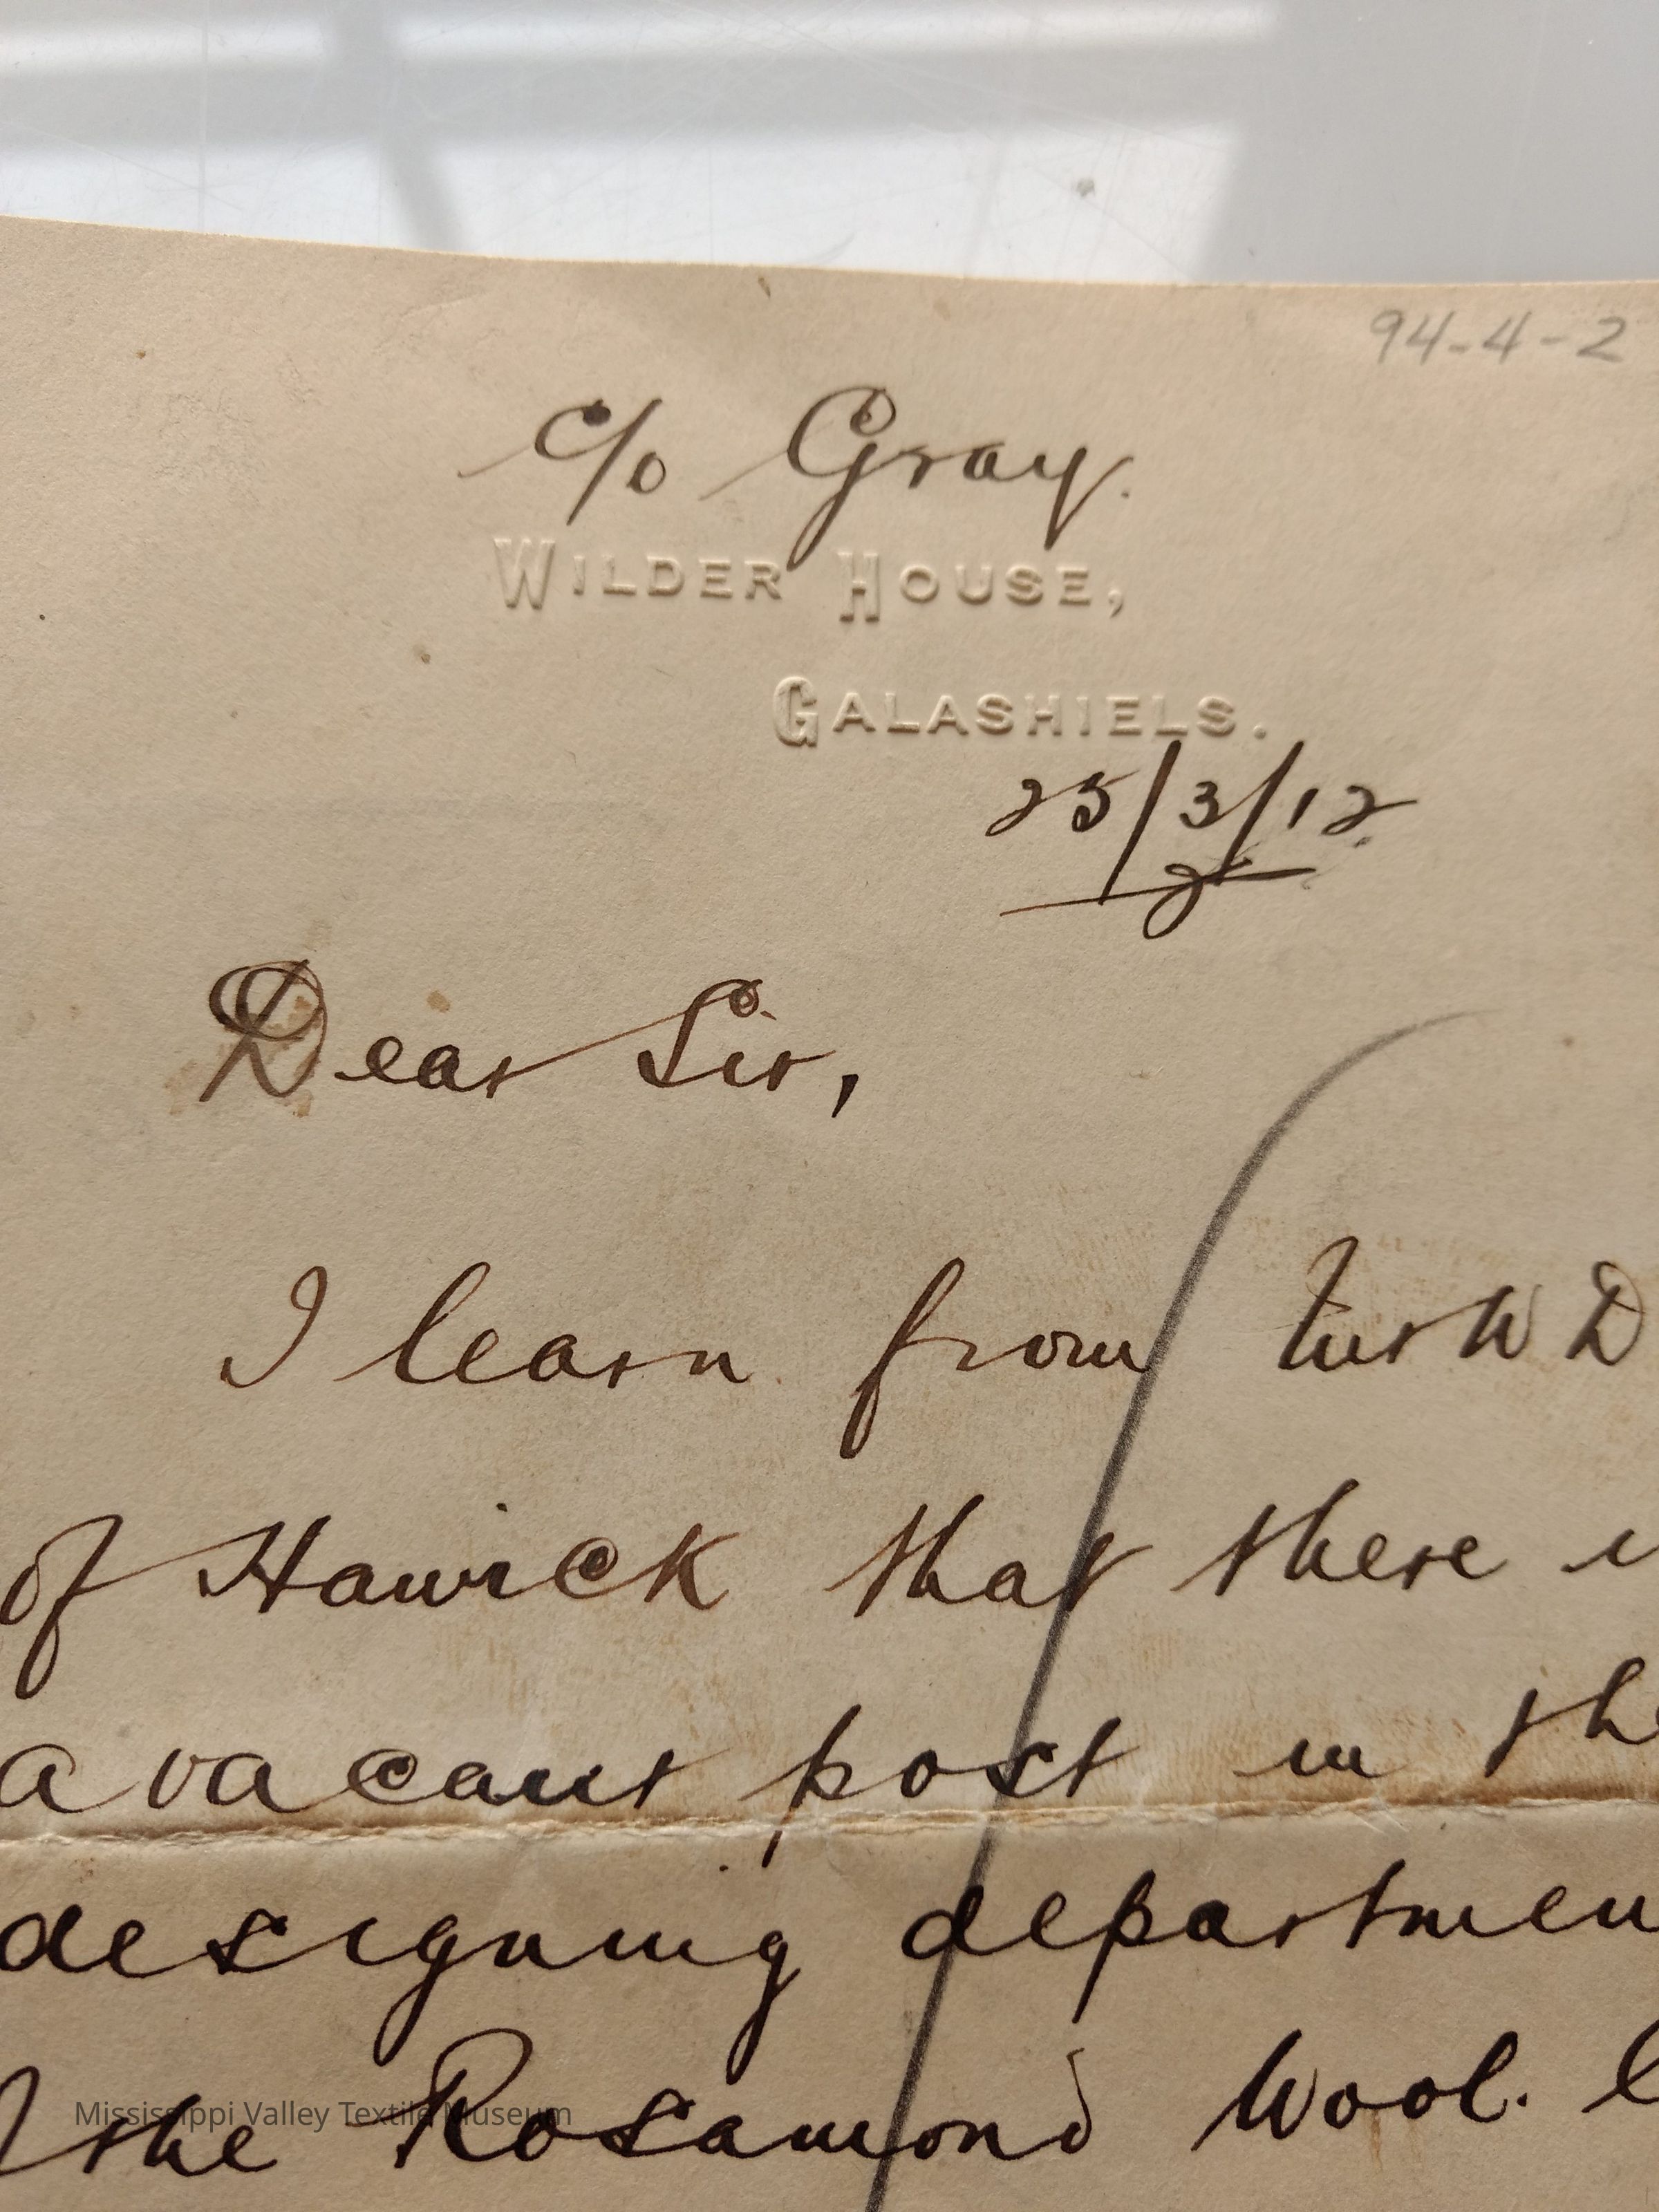 94-4-2
c/o Gray.
WILDER HOUSE,
GALASHIELS.
25/3/12.
Dear Sir,
I learn from W D
of Hawick that there
a vacant post in the
designing departmen
the Rosamond Wool.
Mississippi Valley Textile Museum